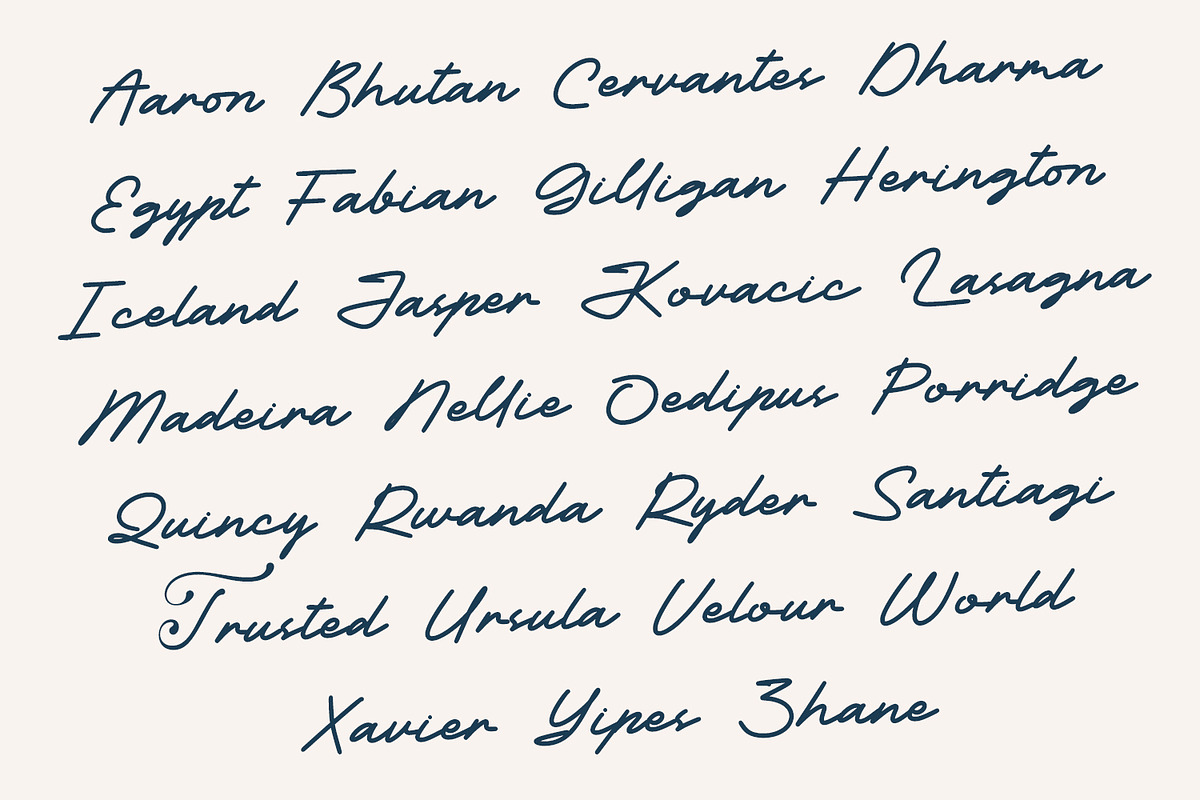 Aaron Bhutan Cervantes Dharma
Egypt Fabian Gilligan Herington
Iceland Jasper Kovacic Lasagna
Madeira Nellie Oedipus Porridge
Quincy Rwanda Ryder Santiagi
Trusted Ursula Velour World
Xavier Yipes Zhane